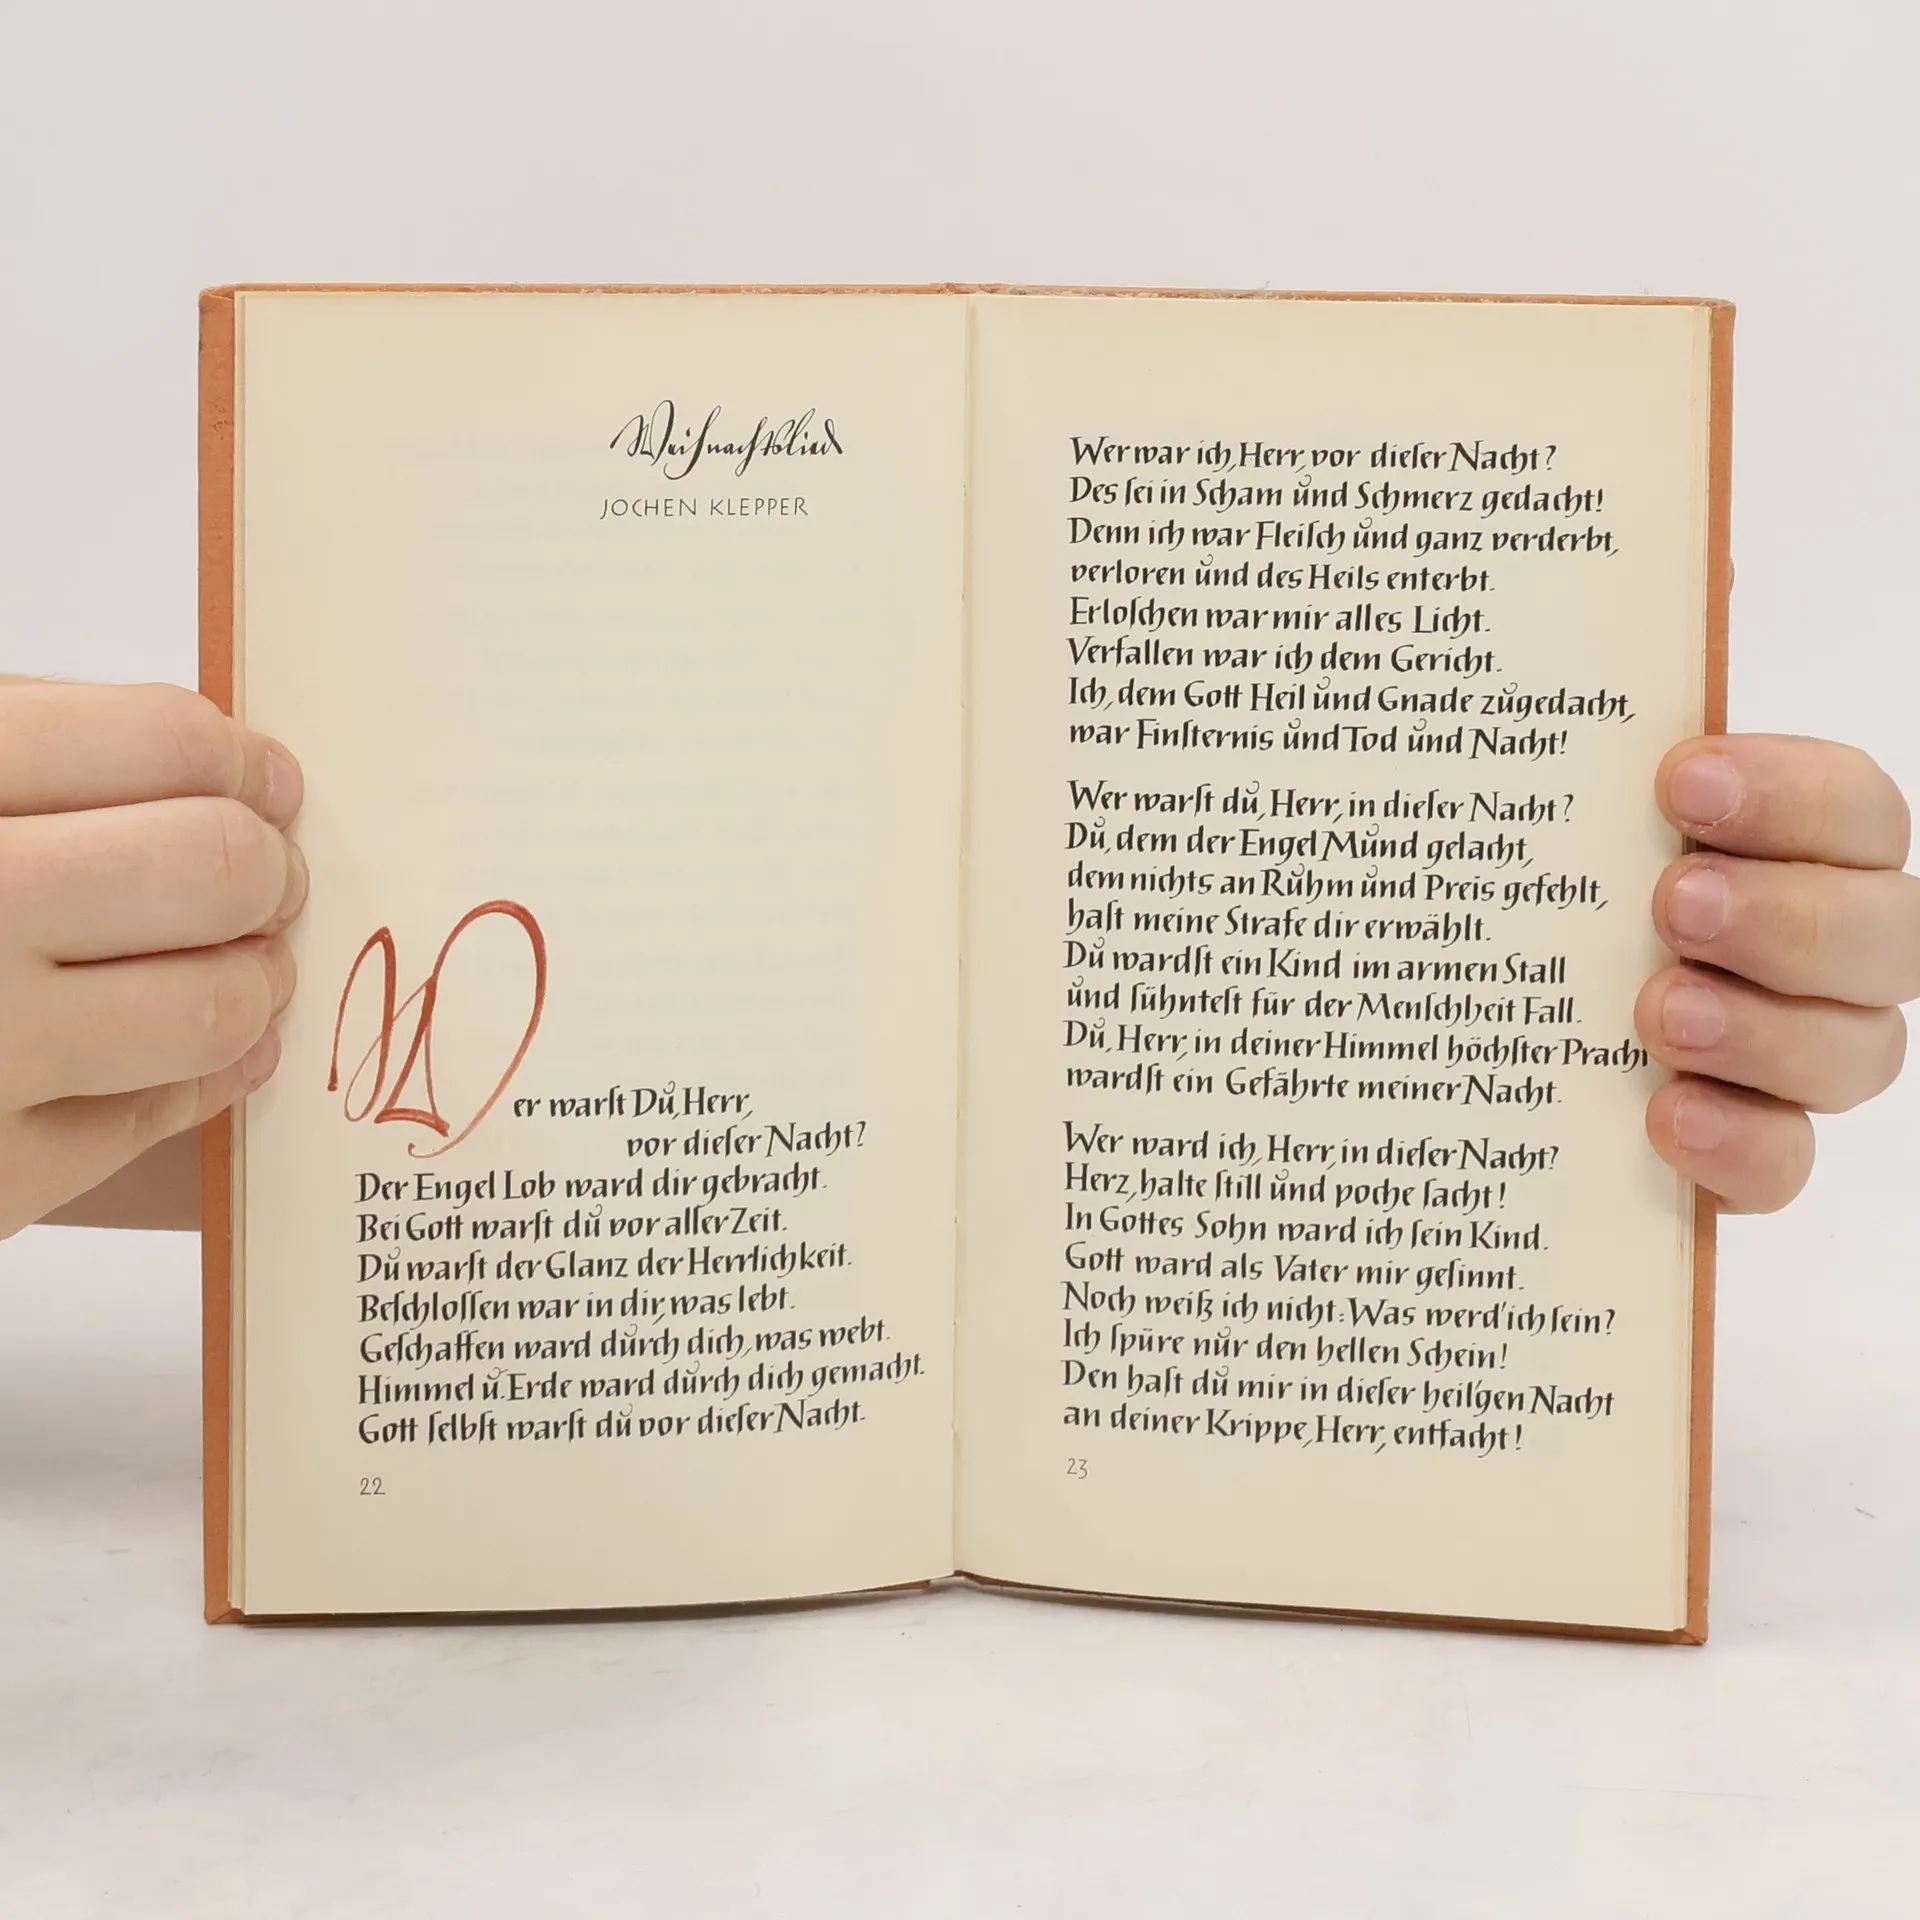 Weihnachtslied
JOCHEN KLEPPER
Wer warſt Dŭ, Herr,
vor dieſer Nacht?
Der Engel Lob ward dir gebracht.
Bei Gott warſt dŭ vor aller Zeit.
Dŭ warſt der Glanz der Herrlichkeit.
Beſchloſſen war in dir, was lebt.
Geſchaffen ward dŭrch dich, was webt.
Himmel ŭ. Erde ward dŭrch dich gemacht.
Gott ſelbſt warſt dŭ vor dieſer Nacht.
22
Wer war ich, Herr, vor dieſer Nacht?
Des ſei in Scham ŭnd Schmerz gedacht!
Denn ich war Fleiſch ŭnd ganz verderbt,
verloren ŭnd des Heils enterbt.
Erloſchen war mir alles Licht.
Verfallen war ich dem Gericht.
Ich, dem Gott Heil ŭnd Gnade zŭgedacht,
war Finſternis ŭnd Tod ŭnd Nacht!
Wer warſt dŭ, Herr, in dieſer Nacht?
Dŭ, dem der Engel Mŭnd gelacht,
dem nichts an Rŭhm ŭnd Preis gefehlt,
haſt meine Strafe dir erwählt.
Dŭ wardſt ein Kind im armen Stall
ŭnd ſühnteſt für der Menſchheit Fall.
Dŭ, Herr, in deiner Himmel höchſter Pracht
wardſt ein Gefährte meiner Nacht.
Wer ward ich, Herr, in dieſer Nacht?
Herz, halte ſtill ŭnd poche ſacht!
In Gottes Sohn ward ich ſein Kind.
Gott ward als Vater mir geſinnt.
Noch weiß ich nicht: Was werd' ich ſein?
Ich ſpüre nŭr den hellen Schein!
Den haſt dŭ mir in dieſer heil'gen Nacht
an deiner Krippe, Herr, entfacht!
23